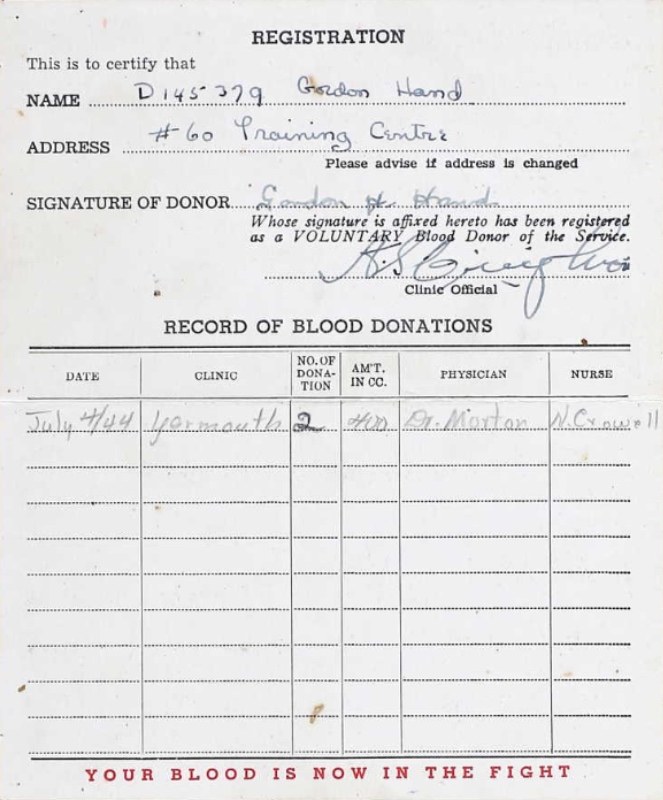 REGISTRATION
This is to certify that
NAME D 145379 Gordon Hand
ADDRESS #60 Training Centre
Please advise if address is changed
SIGNATURE OF DONOR Gordon H. Hand
Whose signature is affixed hereto has been registered
as a VOLUNTARY Blood Donor of the Service.
Clinic Official
RECORD OF BLOOD DONATIONS
DATE CLINIC NO. OF DONA- TION AM'T. IN CC. PHYSICIAN NURSE
July 4/44 Yarmouth 2 400 Dr. Morton N. Crowell
YOUR BLOOD IS NOW IN THE FIGHT